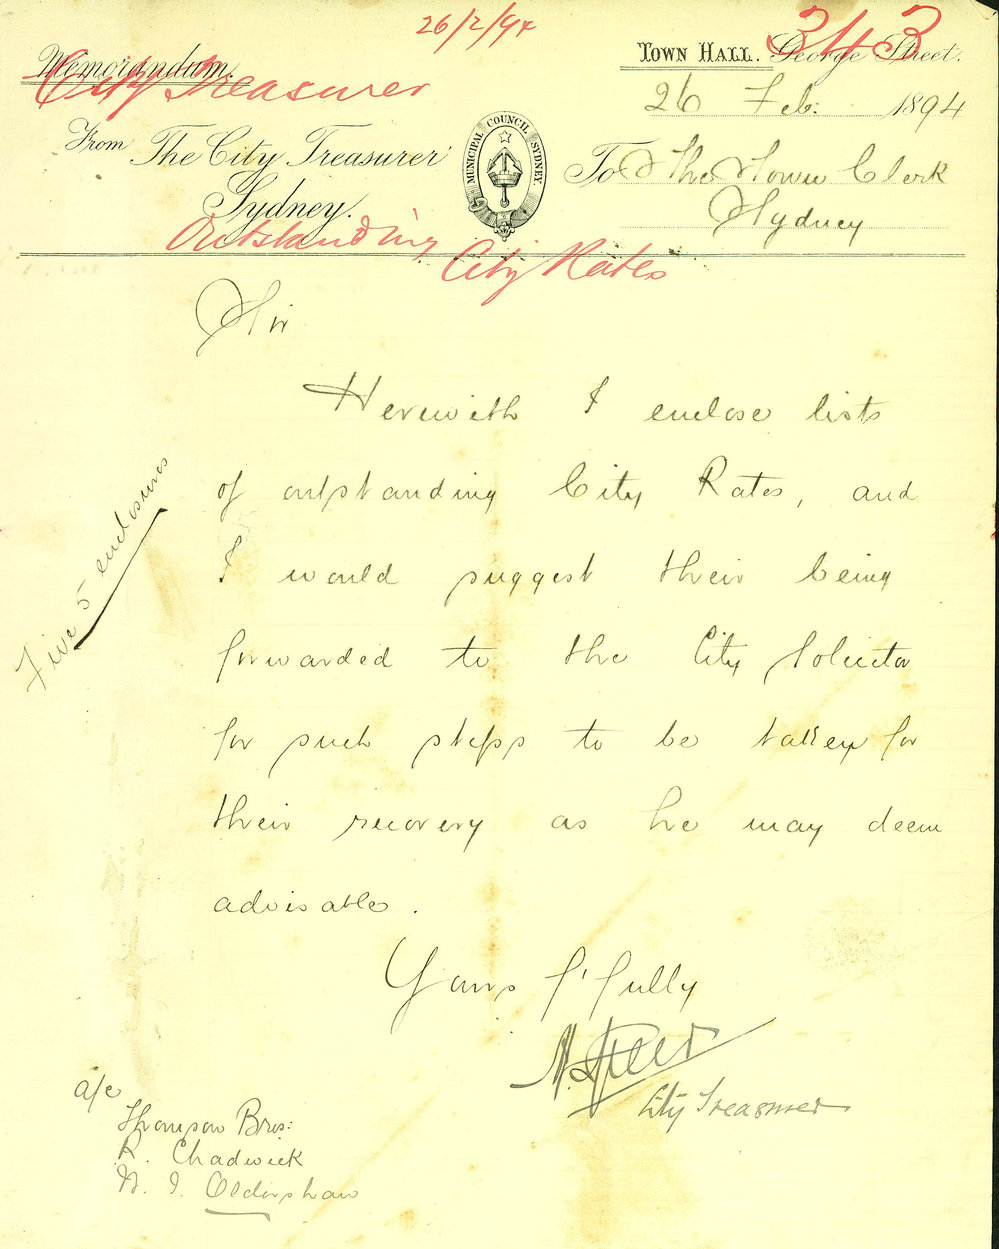 26/2/94
343
Memorandum.
City Treasurer
TOWN HALL. George Street.
26 Feb: 1894
From The City Treasurer
Sydney.
MUNICIPAL COUNCIL SYDNEY.
To The Town Clerk
Sydney
Outstanding City Rates
Sir
Herewith I enclose lists
of outstanding City Rates, and
I would suggest their being
forwarded to the City Solicitor
for such steps to be taken for
their recovery as he may deem
advisable.
Five 5 enclosures
Yours f'fully
City Treasurer
a/c
Thompson Bros:
R. Chadwick
Oldershaw